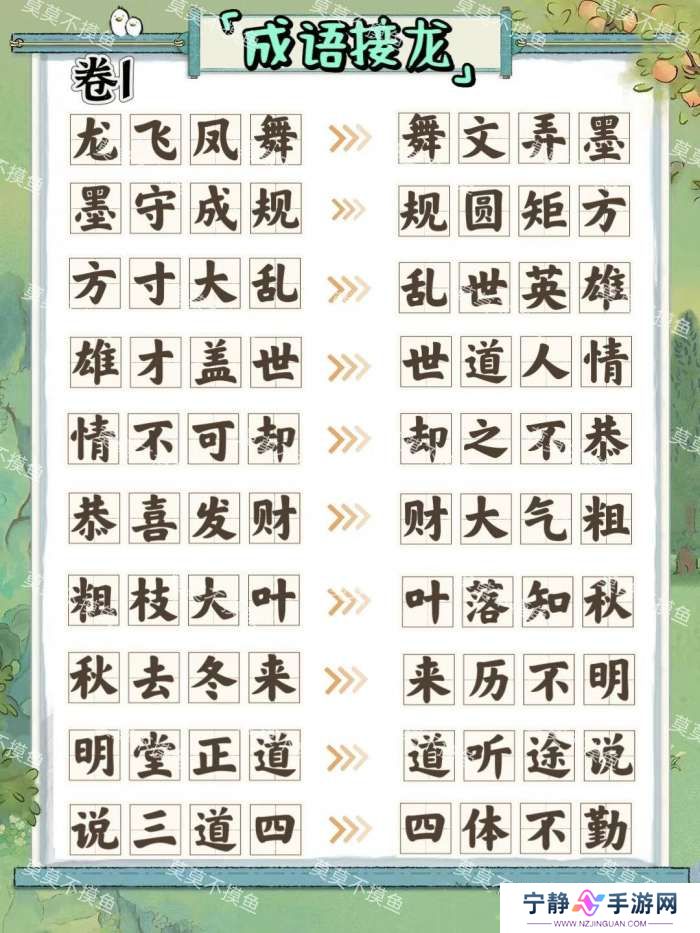 「成语接龙」
卷1
龙飞凤舞 >>> 舞文弄墨
墨守成规 >>> 规圆矩方
方寸大乱 >>> 乱世英雄
雄才盖世 >>> 世道人情
情不可却 >>> 却之不恭
恭喜发财 >>> 财大气粗
粗枝大叶 >>> 叶落知秋
秋去冬来 >>> 来历不明
明堂正道 >>> 道听途说
说三道四 >>> 四体不勤
莫莫不摸鱼
宁静手游网
WWW.NZJINGUAN.COM